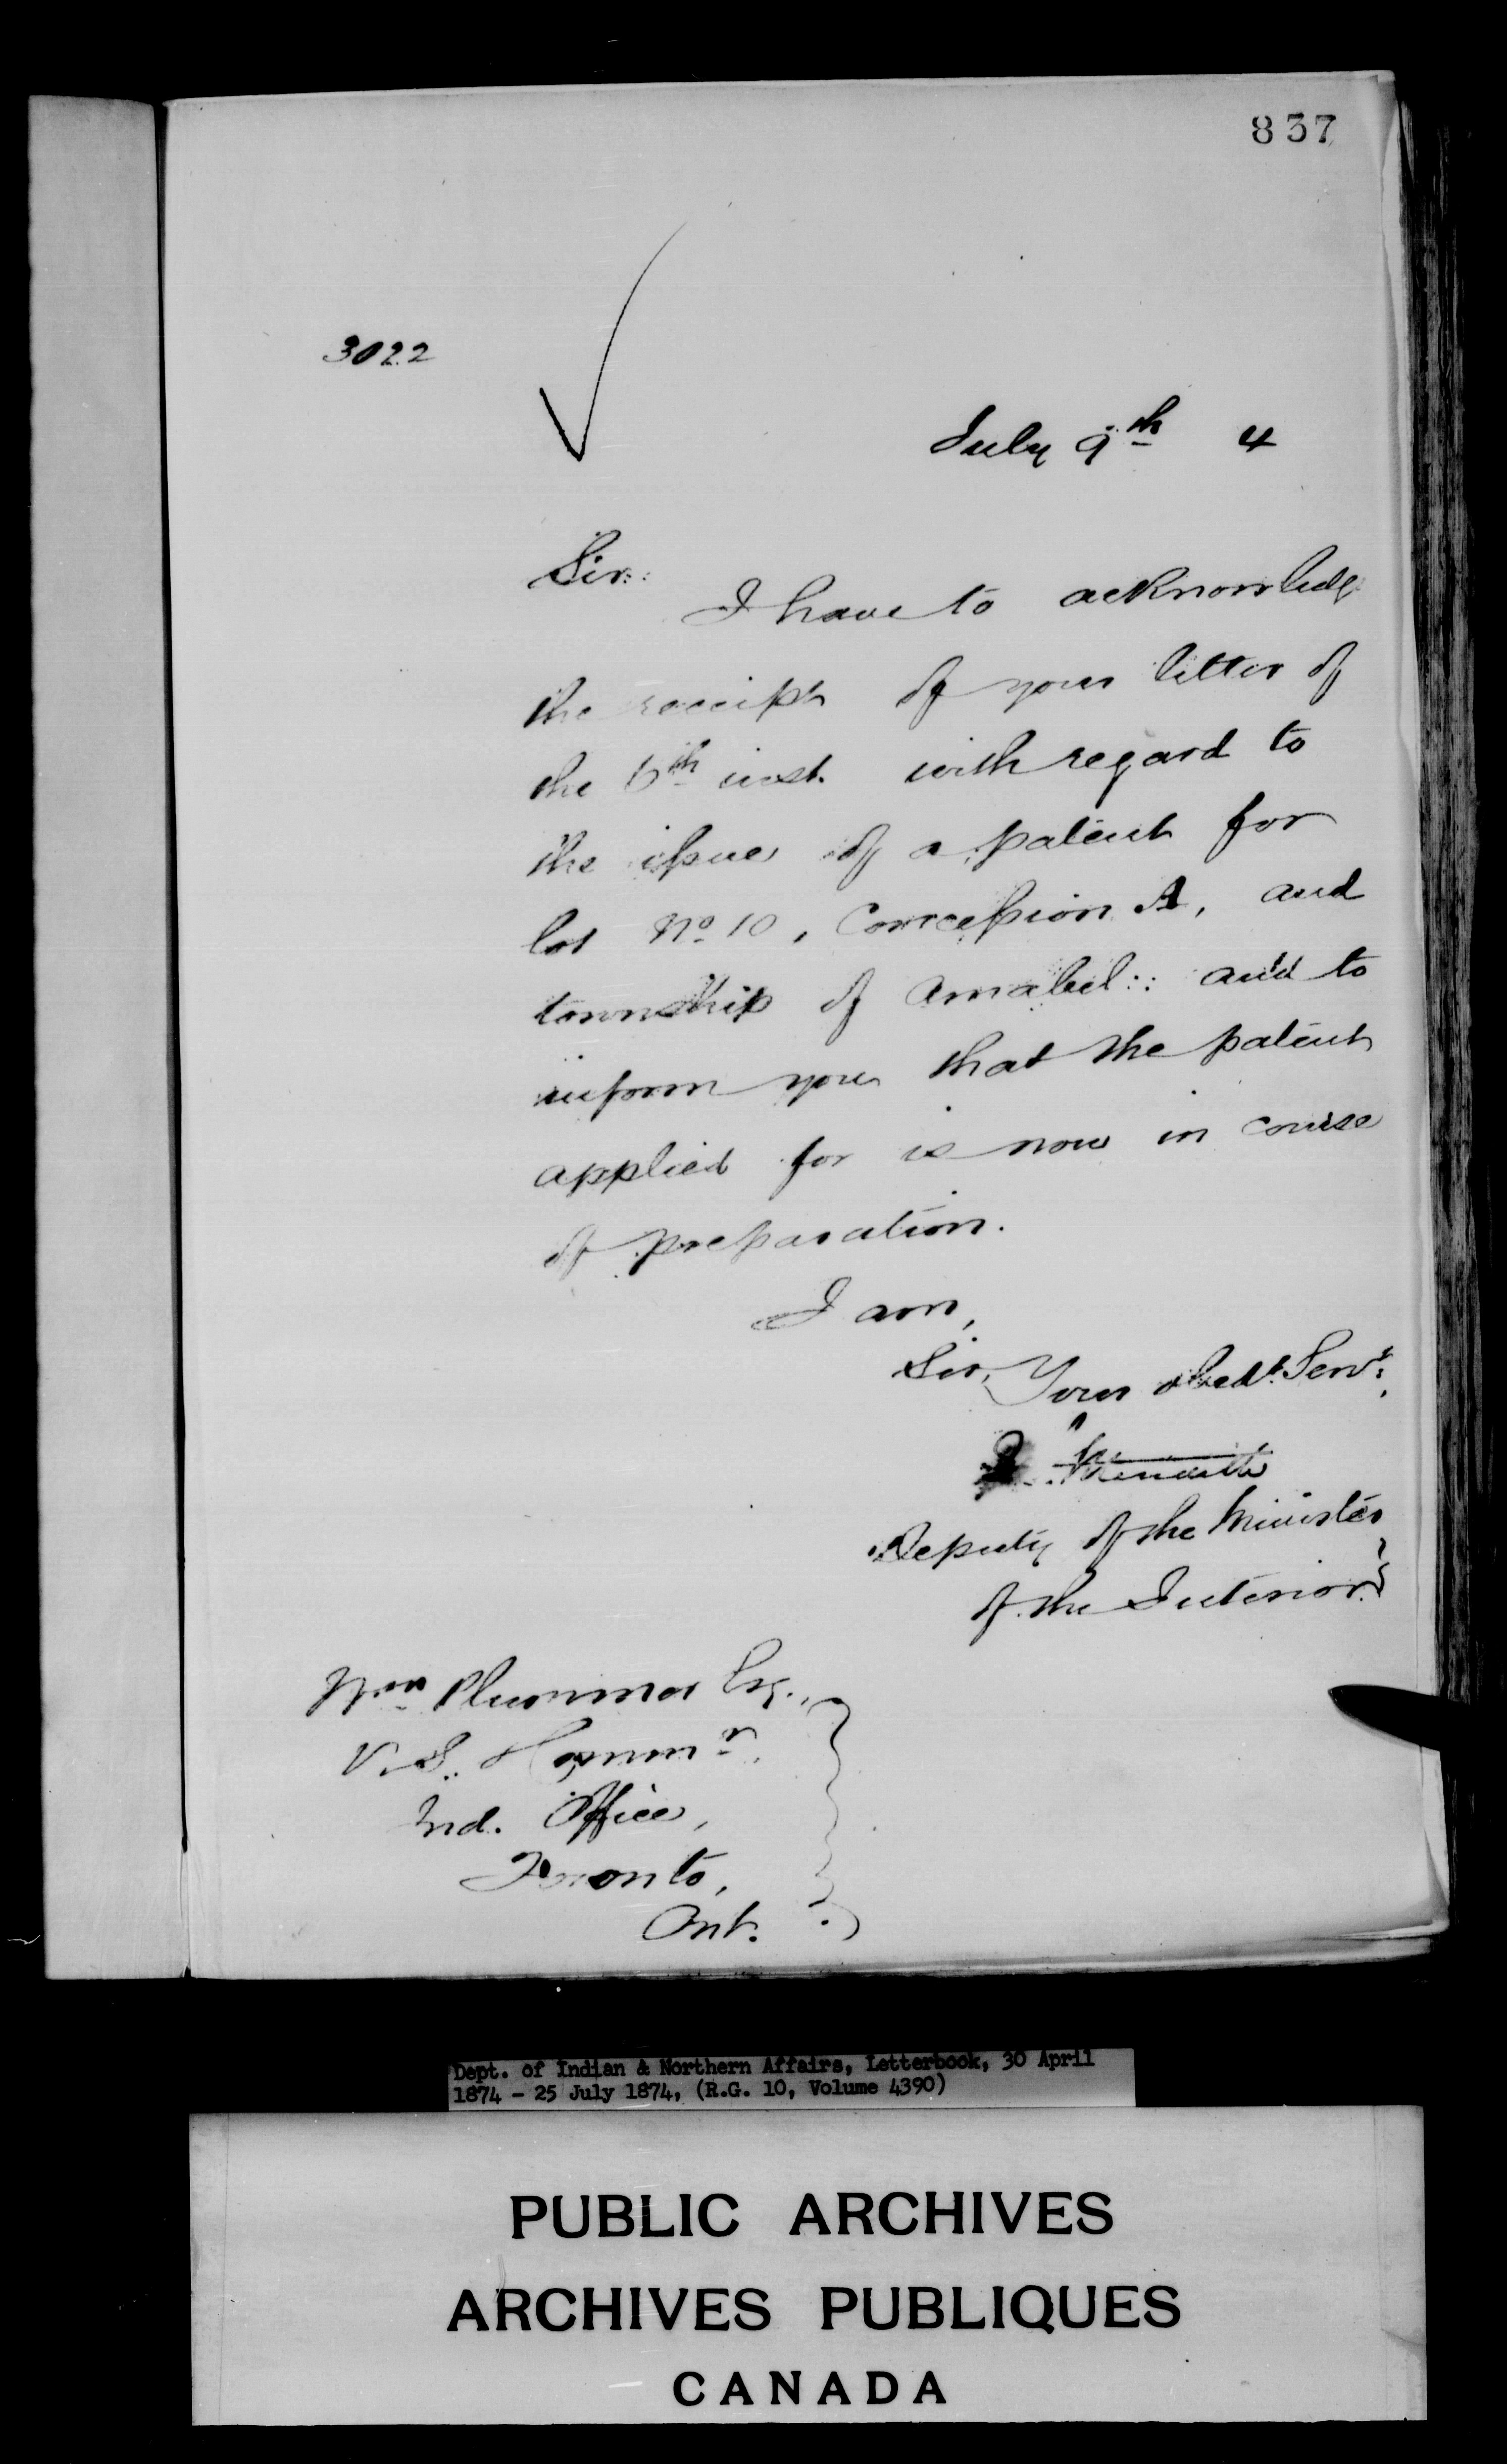 837
3022
July 9th 4
Sir:
I have to acknowledge
the receipt of your letter of
the 6th inst. with regard to
the issue of a patent for
lot No. 10, Concession A, and
township of Amabel: and to
inform you that the patent
applied for is now in course
of preparation.
I am,
Sir, Your obedt. Servt.
Meredith
Deputy of the Minister
of the Interior.
Wm Plummer Esq.,
V. S. Commr.
Ind. Office,
Toronto,
Ont.
Dept. of Indian & Northern Affairs, Letterbook, 30 April
1874 - 25 July 1874, (R.G. 10, Volume 4390)
PUBLIC ARCHIVES
ARCHIVES PUBLIQUES
CANADA